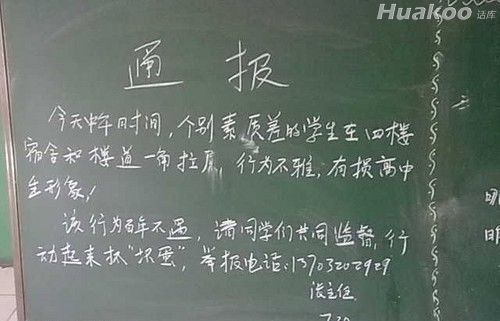 Huakoo 话库
通报
今天中午时间，个别素质差的学生在四楼
宿舍和楼道一角拉尿，行为不雅，有损高中
生形象！
该行为百年不遇，请同学们共同监督，行
动起来抓"坏蛋"，举报电话：13703202929
主任